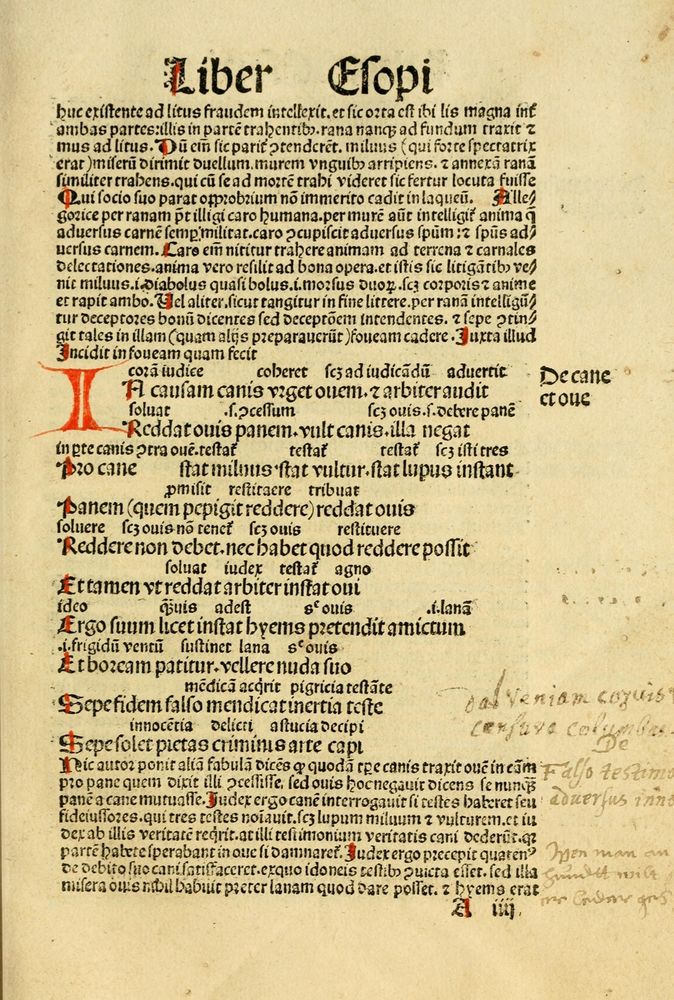 Liber Esopi
huc existente ad litus fraudem intellexit. et sic orta est ibi lis magna int̃
ambas partes: illis in partẽ trahentibꝰ. rana nanqꝫ ad fundum traxit ⁊
mus ad litus. Dũ em̃ sic parit̃ ꝯtenderẽt. miluus (qui forte spectatrix
erat) miserũ dirimit duellum. murem vnguibꝰ arripiens. ⁊ annexã ranã
similiter trahens. qui cũ se ad mortẽ trahi videret sic fertur locuta fuisse
Qui socio suo parat opprobrium nõ immerito cadit in laqueũ. Alle⸗
gorice per ranam p̃t illigi caro humana. per murẽ aũt intelligit̃ anima q̃
aduersus carnẽ semp̱ militat. caro ꝯcupiscit aduersus spũm: ⁊ spũs ad⸗
uersus carnem. Caro em̃ nititur trahere animam ad terrena ⁊ carnales
delectationes. anima vero resilit ad bona opera. et istis sic litigãtibꝰ ve⸗
nit miluus .i. diabolus quasi bolus .i. morsus duoꝝ. scꝫ corporis ⁊ anime
et rapit ambo. Uel aliter. sicut tangitur in fine littere. per ranã intelligũ⸗
tur deceptores bonũ dicentes sed deceptõem intendentes. ⁊ sepe ꝯtin⸗
git tales in illam (quam alijs preparauerũt) foueam cadere. Iuxta illud
Incidit in foueam quam fecit
corã iudice coheret scꝫ ad iudicãdũ aduertit
IN causam canis vrget ouem. ⁊ arbiter audit
De cane
et oue
soluat .s. ꝓcessum scꝫ ouis .s. debere panẽ
Reddat ouis panem. vult canis. illa negat
in p̱te canis ꝯtra ouẽ. testat̃ testat̃ testat̃ scꝫ isti tres
Pro cane stat miluus. stat vultur. stat lupus instant
ꝓmisit restituere tribuat
Panem (quem pepigit reddere) reddat ouis
soluere scꝫ ouis nõ tenet̃ scꝫ ouis restituere
Reddere non debet. nec habet quod reddere possit
soluat iudex testat̃ agno
Et tamen vt reddat arbiter instat oui
ideo q̃uis adest sᶜ ouis .i. lanã
Ergo suum licet instat hyems pretendit amictum
.i. frigidũ ventũ sustinet lana sᶜ ouis
Et boream patitur. vellere nuda suo
mẽdicã acq̃rit pigricia testãte
Sepe fidem falso mendicat inertia teste
innocẽtia delicti astucia decipi
Sepe solet pietas criminis arte capi
Hic autor ponit aliã fabulã dicẽs ꝙ quodã tp̱e canis traxit ouẽ in cãm
pro pane quem dixit illi ꝯcessisse. sed ouis hoc negauit dicens se nunqꝫ
panẽ a cane mutuasse. Iudex ergo canẽ interrogauit si testes haberet seu
fideiussores. qui tres testes noĩauit. scꝫ lupum miluum ⁊ vulturem. et iu
dex ab illis veritatẽ req̃rit. at illi testimonium veritatis cani dederũt. qꝛ
partẽ habere sperabant in oue si damnaret̃. Iudex ergo precepit quatenꝰ
de debito suo cani satisfaceret. ex quo idoneis testibꝰ ꝯuicta esset. sed illa
misera ouis nihil habuit preter lanam quod dare posset. ⁊ hyems erat
A iiij
dat veniam coruis
censura columbas
De
Falso testimo
adversus inno
Wen man